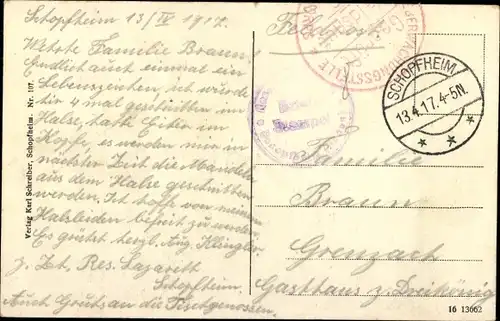 Schopfheim 13/IV 1917.
Werte Familie Braun!
Endlich auch einmal ein
Lebenszeichen, ist ich wurde
hir 4 mal geschnitten im
Halse, hatte Eiter im
Kopfe, es werden mir in
nächster Zeit die Mandeln
aus dem Halse geschnitten
werden. Ist hoffe von meinem
Halsleiden befreit zu werden.
Es grüßt herzl. Aug. Klingler
z. Zt. Res. Lazarett
Schopfheim.
Auch Gruß an die Tischgenossen.
Verlag Karl Schreiber, Schopfheim. Nr. 107.
Feldpost.
ÜBERWACHUNGSSTELLE
SCHOPFHEIM
13.4.17.4-5N.
Familie
Braun
Grenzach
Gasthaus z. Dreikönig
16 13662